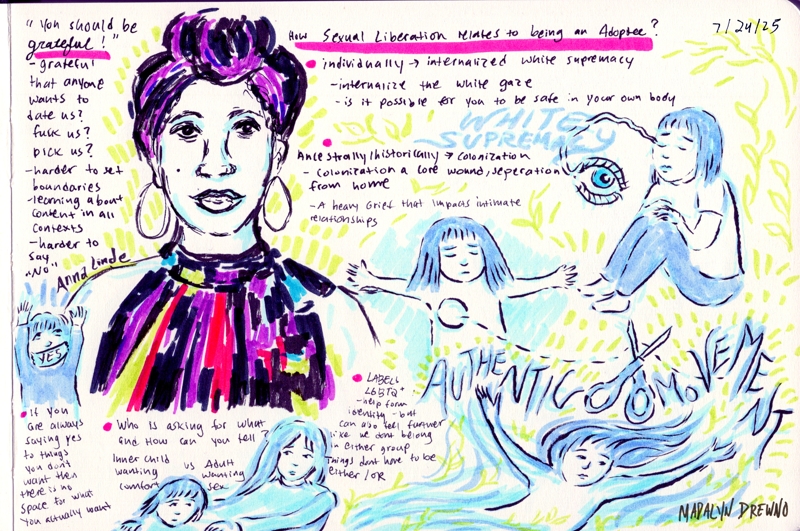 "You should be
grateful!"
- grateful
that anyone
wants to
date us?
fuck us?
pick us?
- harder to set
boundaries
- learning about
content in all
contexts
- harder to
say
"No"
Anna Linde
YES
• If you
are always
saying yes
to things
you don't
want then
there is no
space for what
you actually want
How Sexual Liberation relates to being an Adoptee?
7/24/25
• individually → internalized white supremacy
- internalize the white gaze
- is it possible for you to be safe in your own body
WHITE
SUPREMACY
• Ancestrally/historically → colonization
- colonization a core wound, seperation
from home
- A heavy Grief that impacts intimate
relationships
AUTHENTIC MOVEMENT
• Who is asking for what
and How can you tell?
Inner child vs Adult
wanting wanting
comfort sex
• LABELS
LGBTQ+
- help form
identity - but
can also feel further
like we dont belong
in either group
Things dont have to be
either/or
MADALYN DREWNO